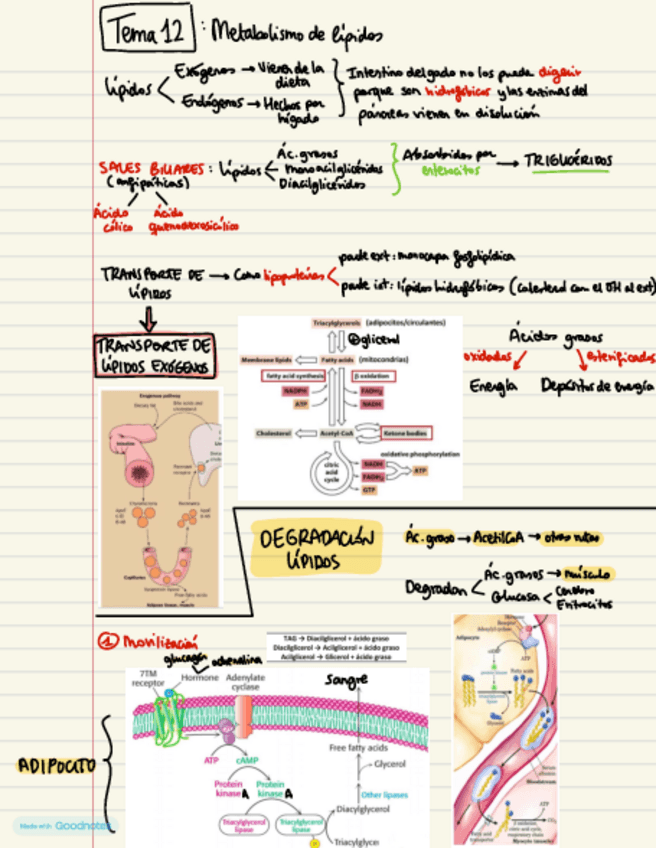 Tema 12 : Metabolismo de lípidos
Lípidos
Exógenos → Vienen de la dieta
Endógenos → Hechos por hígado
Intestino delgado no los puede digerir
porque son hidrofóbicos y las enzimas del
páncreas vienen en disolución
SALES BILIARES : Lípidos
(anfipáticas)
Ácido cólico
ácido
Ác. grasos
Monoacilglicéridos
Diacilglicéridos
Absorbidos por
enterocitos
→ TRIGLICÉRIDOS
TRANSPORTE DE LÍPIDOS → Como lipoproteínas
parte ext: monocapa fosfolipídica
parte int: lípidos hidrofóbicos (colesterol con el OH al ext)
TRANSPORTE DE
LÍPIDOS EXÓGENOS
Triacylglycerols (adipocitos/circulantes)
glicerol
Membrane lipids
Fatty acids (mitocondrias)
fatty acid synthesis
β oxidation
NADPH
FADH₂
ATP
NADH
Cholesterol
Acetyl-CoA
Ketone bodies
oxidative phosphorylation
citric
acid
cycle
NADH
FADH₂
GTP
ATP
Ácidos grasos
oxidados
esterificados
Energía
Depósitos de energía
Exogenous pathway
Intestine
Capillaries
Adipose tissue, muscle
DEGRADACIÓN
LÍPIDOS
Ác. graso → AcetilCoA → otras rutas
Degradan
Ác. grasos → músculo
Glucosa
Cerebro
Eritrocitos
① Movilización
glucagón
adrenalina
TAG → Diacilglicerol + ácido graso
Diacilglicerol → Acilglicerol + ácido graso
Acilglicerol → Glicerol + ácido graso
7TM
receptor
Hormone
Adenylate
cyclase
Sangre
ATP
cAMP
Protein
kinase A
Protein
kinase A
Triacylglycerol
lipase
Triacylglycerol
lipase
P
Free fatty acids
Glycerol
Other lipases
Diacylglycerol
Triacylglycer
ADIPOCITO
Adipocyte
cAMP
ATP
Fatty acids
Glycerol
Bloodstream
ATP
CO₂
Made with Goodnotes